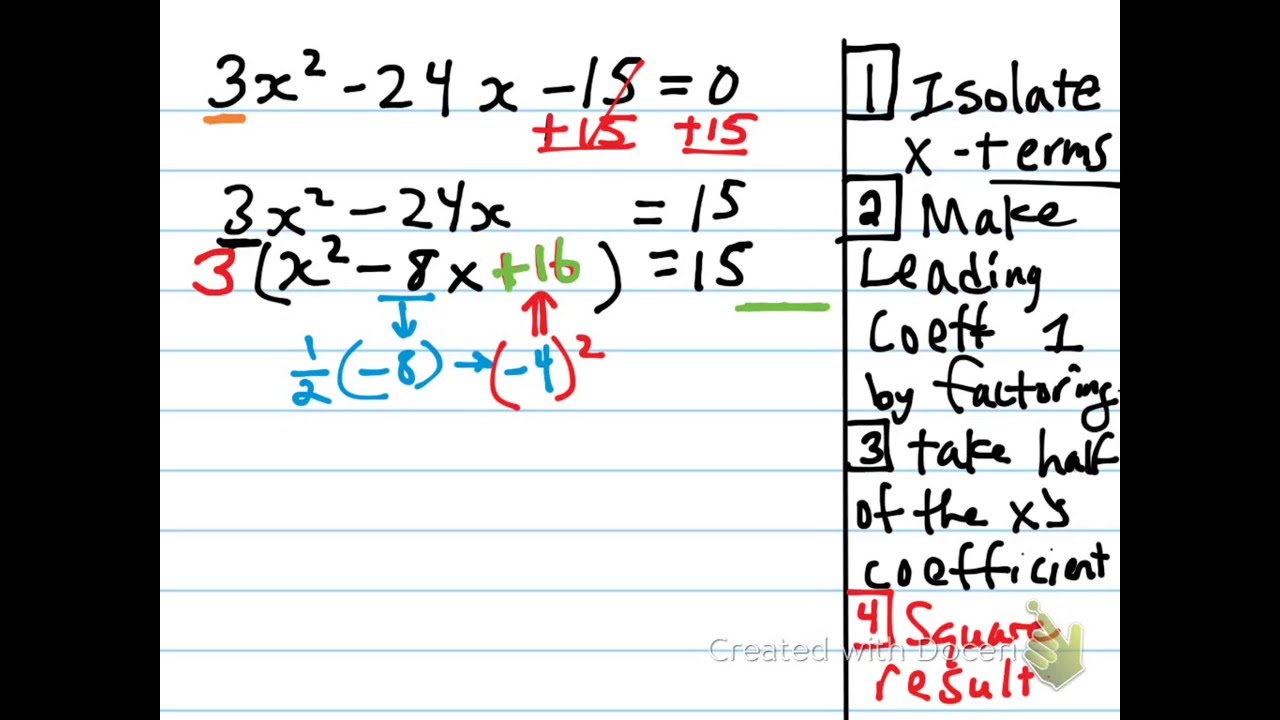 3x² - 24x - 15 = 0
+15 +15
3x² - 24x = 15
3(x² - 8x + 16) = 15
1/2 (-8) → (-4)²
1 Isolate
x-terms
2 Make
Leading
Coeff 1
by factoring
3 take half
of the x's
coefficient
4 Square
result
Created with Doceri